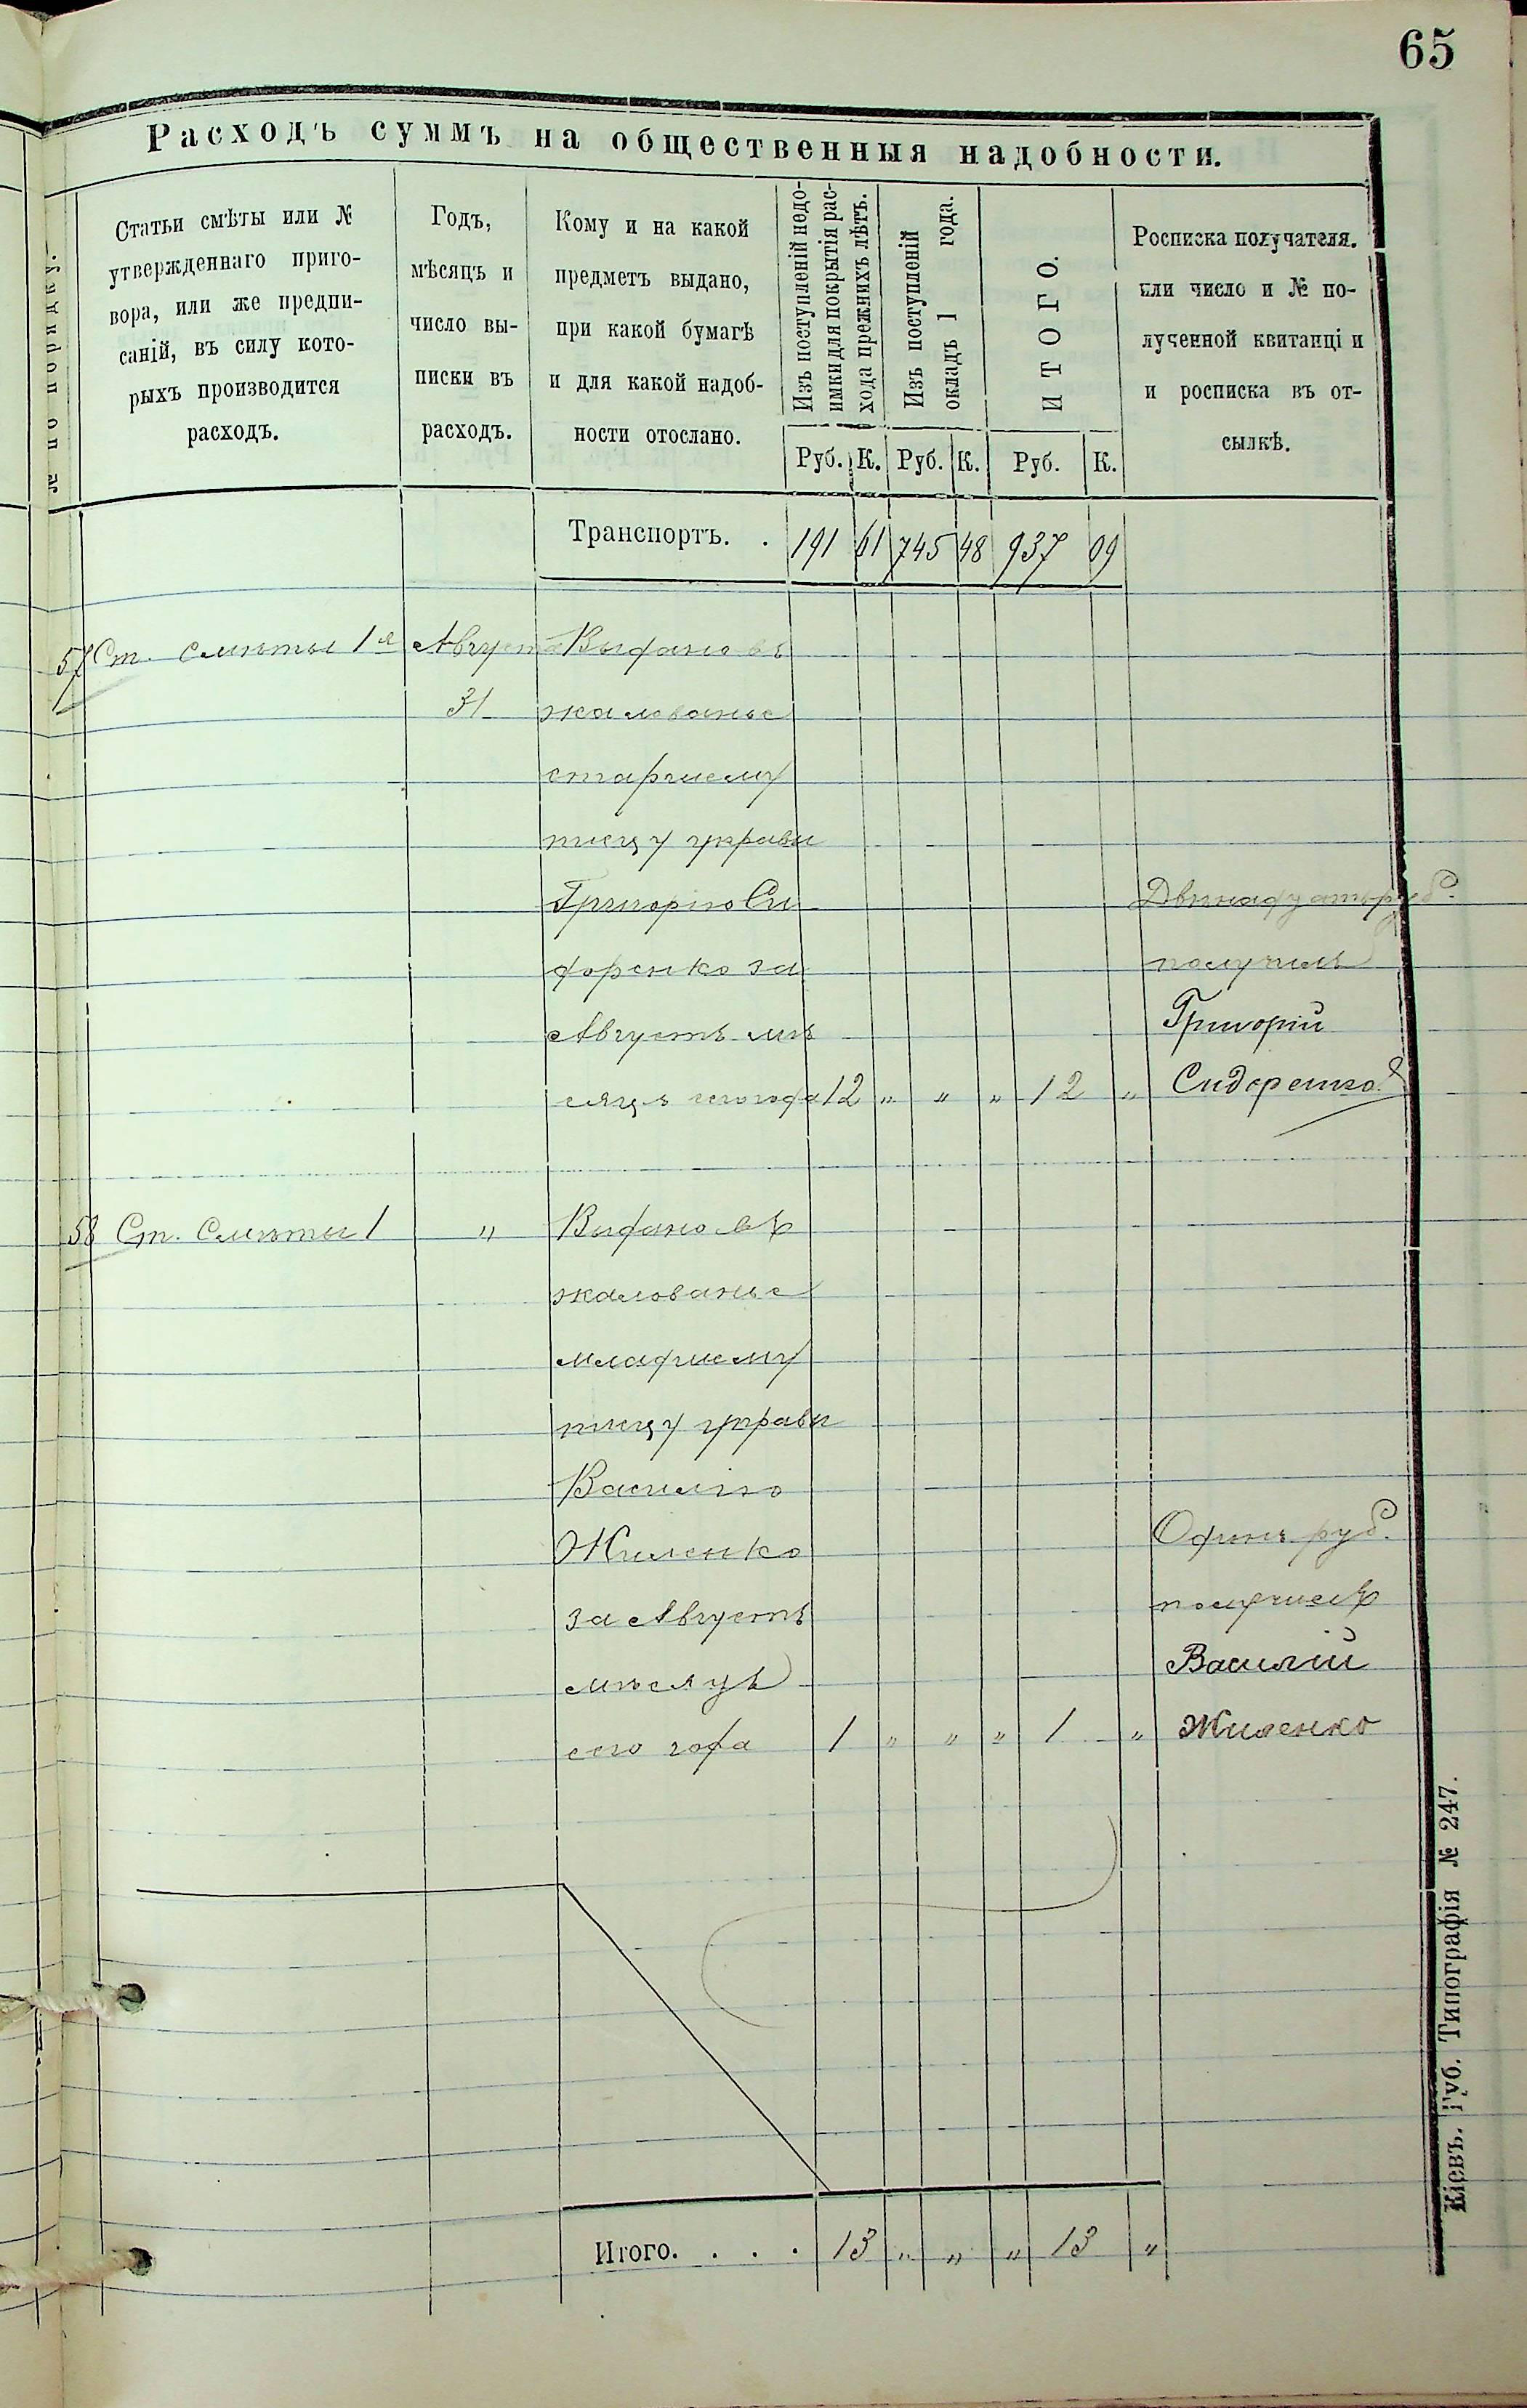 65
Расходъ суммъ на общественныя надобности.
№ по порядку.
Статьи смѣты или №
утвержденнаго приго-
вора, или же предпи-
саній, въ силу кото-
рыхъ производится
расходъ.
Годъ,
мѣсяцъ и
число вы-
писки въ
расходъ.
Кому и на какой
предметъ выдано,
при какой бумагѣ
и для какой надоб-
ности отослано.
Изъ поступленій недо-
имки для покрытія рас-
хода прежнихъ лѣтъ.
Изъ поступленій
окладъ 1 года.
ИТОГО.
Росписка получателя.
или число и № по-
лученной квитанціи
и росписка въ от-
сылкѣ.
Руб. К. Руб. К. Руб. К.
Транспортъ. . 191 61 745 48 937 09
57 Ст. смѣты 1я Августа Выдано въ
31 жалованье
старшему
писцу управы
Григорію Си
доренко за
Августъ мѣ
сяцъ сего года 12 „ „ „ 12 „
Двѣнадцать руб.
получилъ
Григорій
Сидоренко
58 Ст. Смѣты 1 „ Выдано въ
жалованье
младшему
писцу управы
Василію
Жиленко
за Августъ
мѣсяцъ
сего года 1 „ „ „ 1 „
Одинъ руб.
получилъ
Василій
Жиленко
Итого. . . . 13 „ „ „ 13 „
Кіевъ. Губ. Типографія № 247.